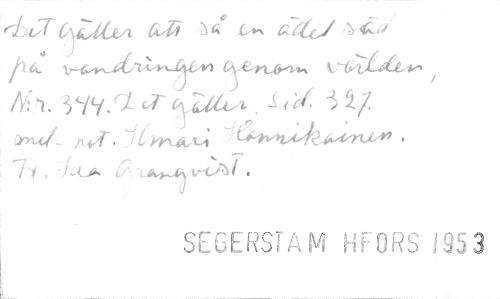 Det gäller att så en ädel säd
på vandringen genom världen,
N:r. 344. Det gäller. Sid. 327.
mel- not. Ilmari Hannikainen.
Tx. Ida Granqvist.
SEGERSTAM HFORS 1953